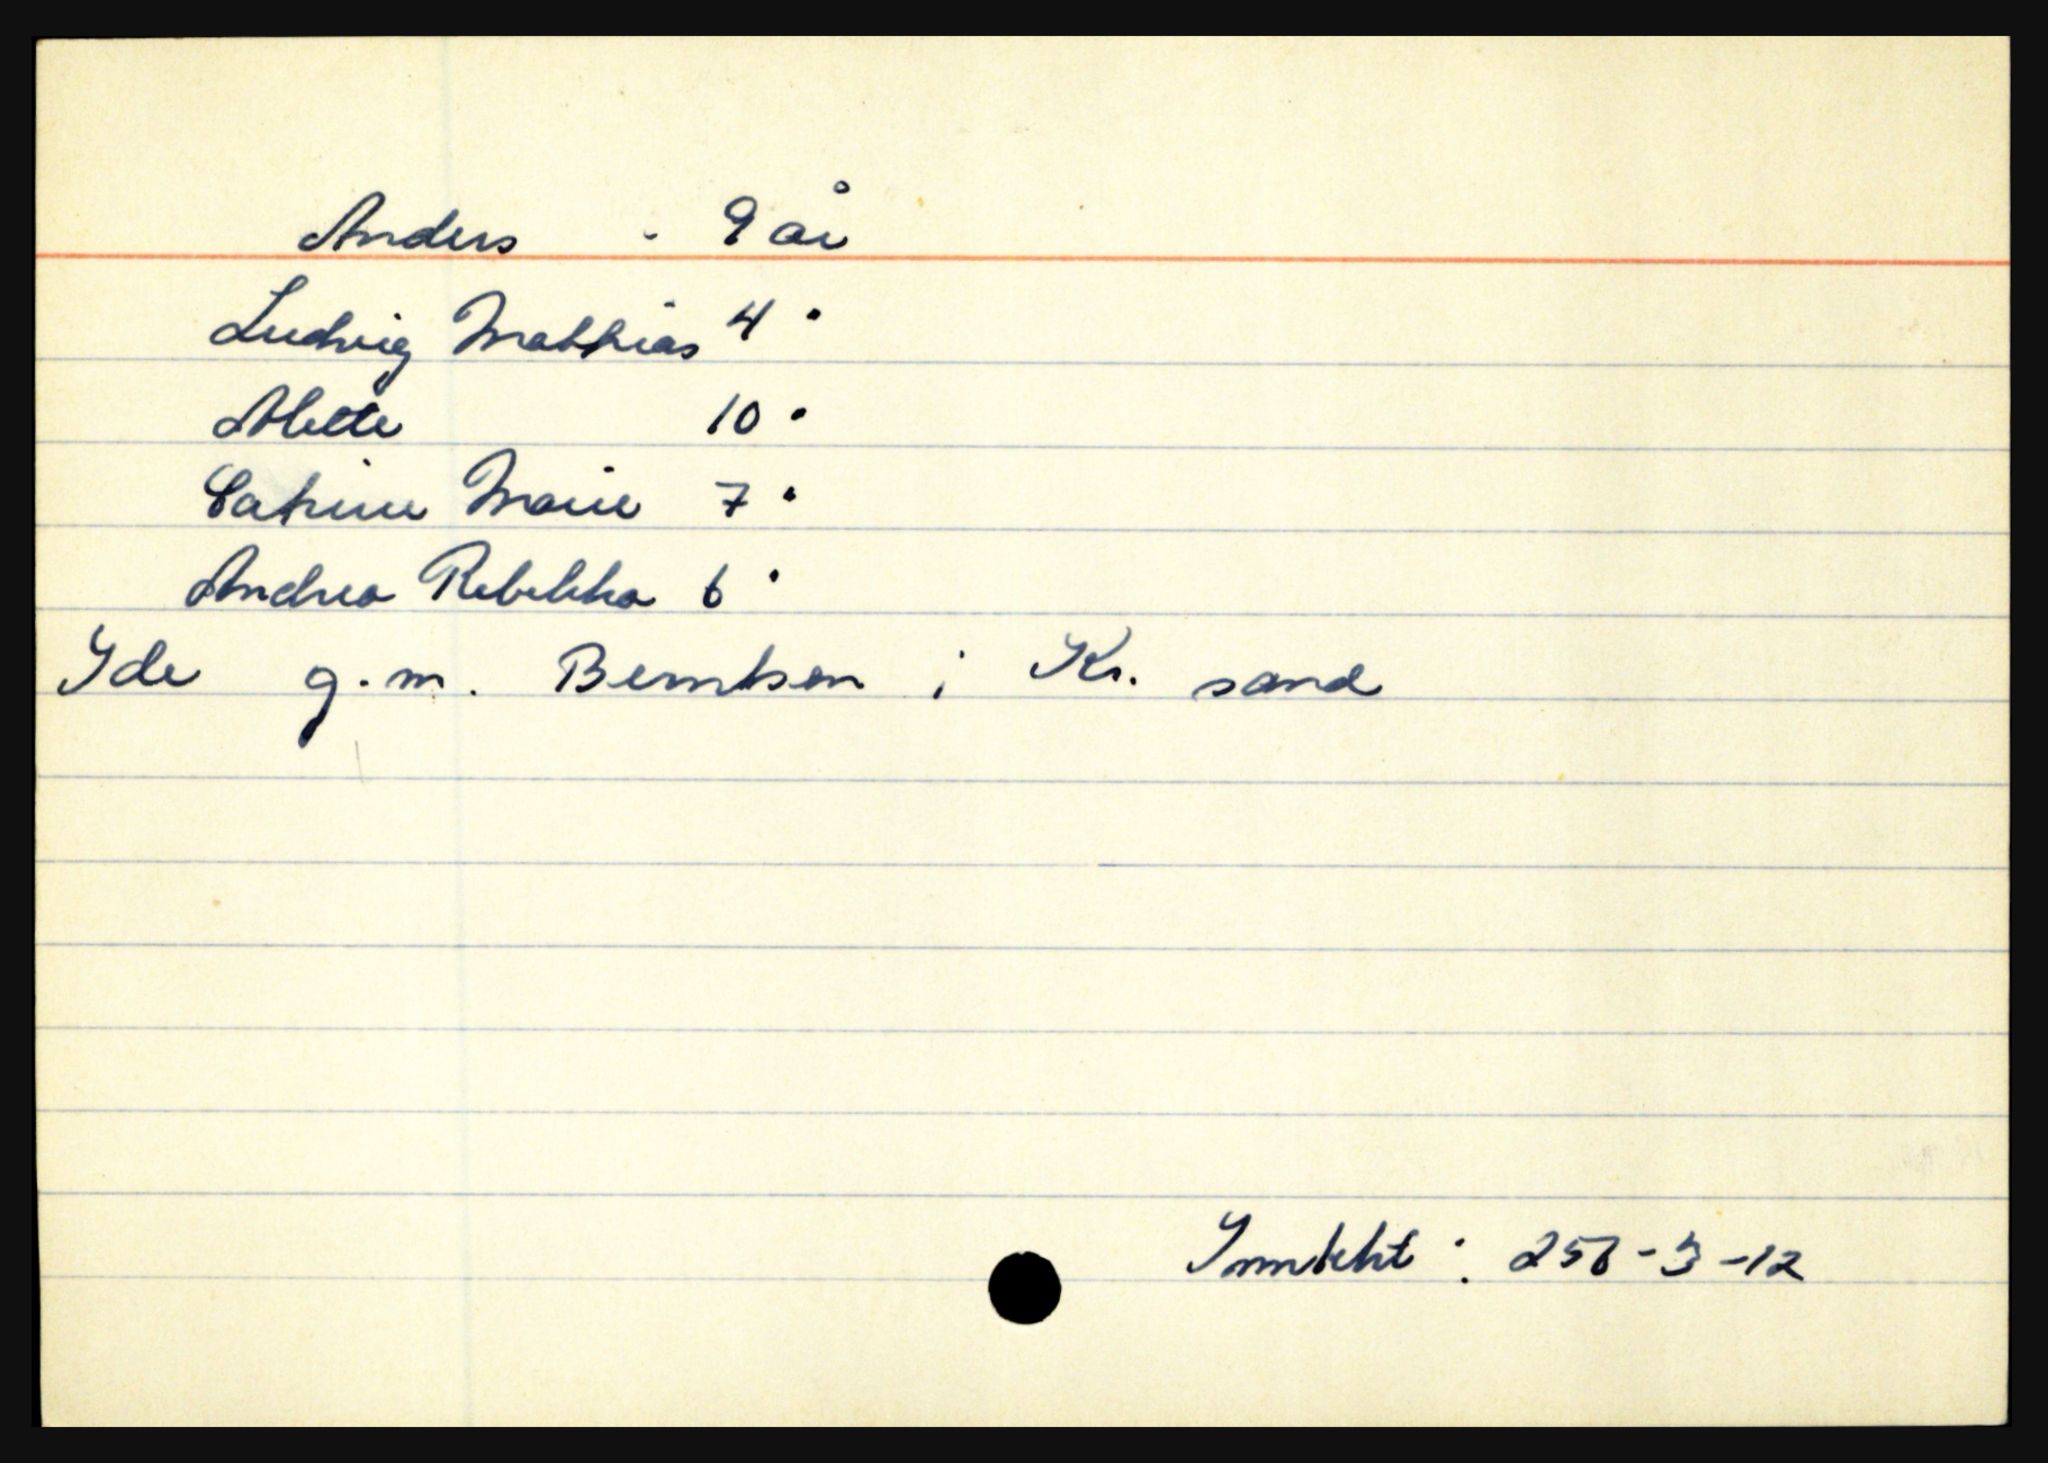 Anders - 9 år
Ludvig Mathias 4 "
Alette 10 "
Catrine Marie 7 "
Andrea Rebekka 6 "
Ide g.m. Berntsen i Kr. sand
Inntekt : 256-3-12